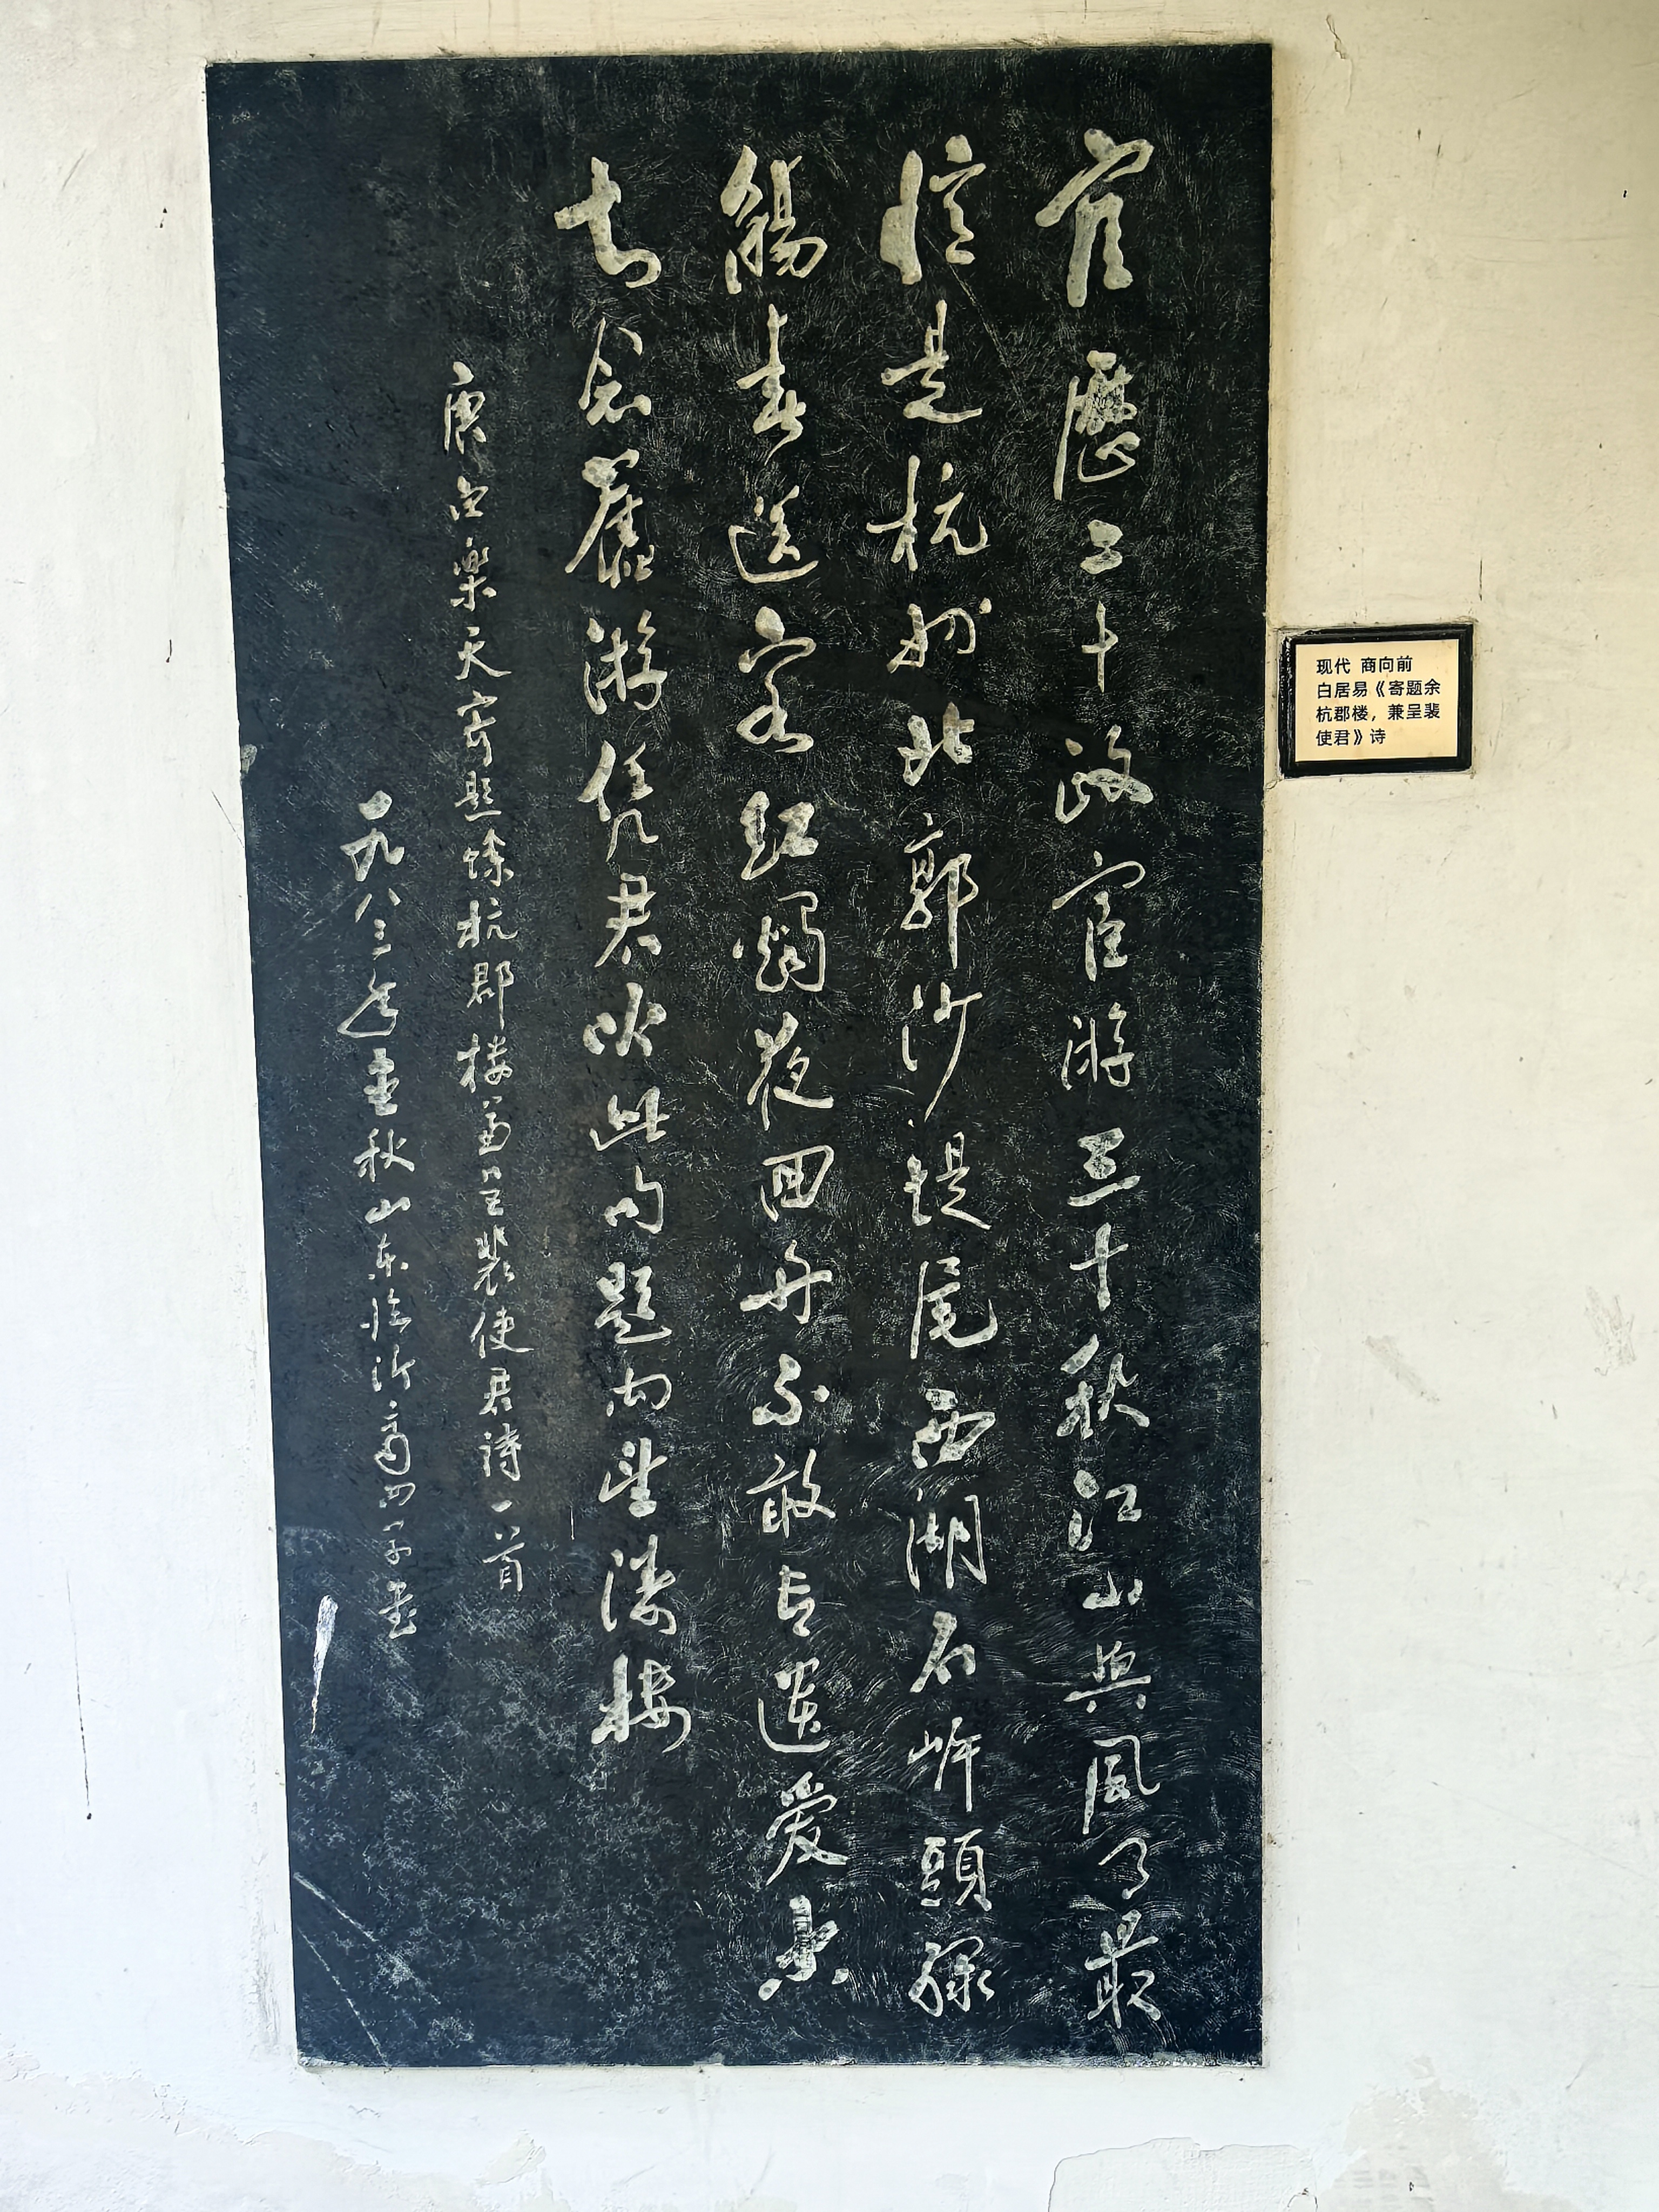 官歷二十政宦游三十秋江山與風月最
憶是杭州北郭沙堤尾西湖石岸頭綠
觴春送客紅燭夜回舟不敢言遺愛
知念舊游凭君吟此句題向望濤楼
唐白楽天寄題餘杭郡楼兼呈裴使君詩一首
一九八三年秋山東臨沂商向前書
现代 商向前
白居易《寄题余
杭郡楼，兼呈裴
使君》诗